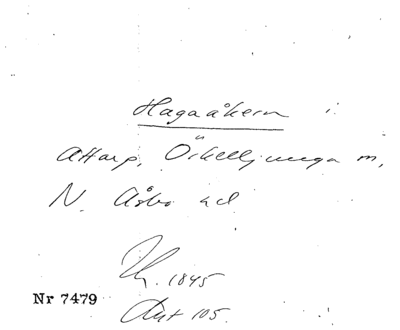 Hagaåkern i
Attarp, Örkelljunga m,
N. Åsbo hd
1845
Nr 7479
Akt 105.